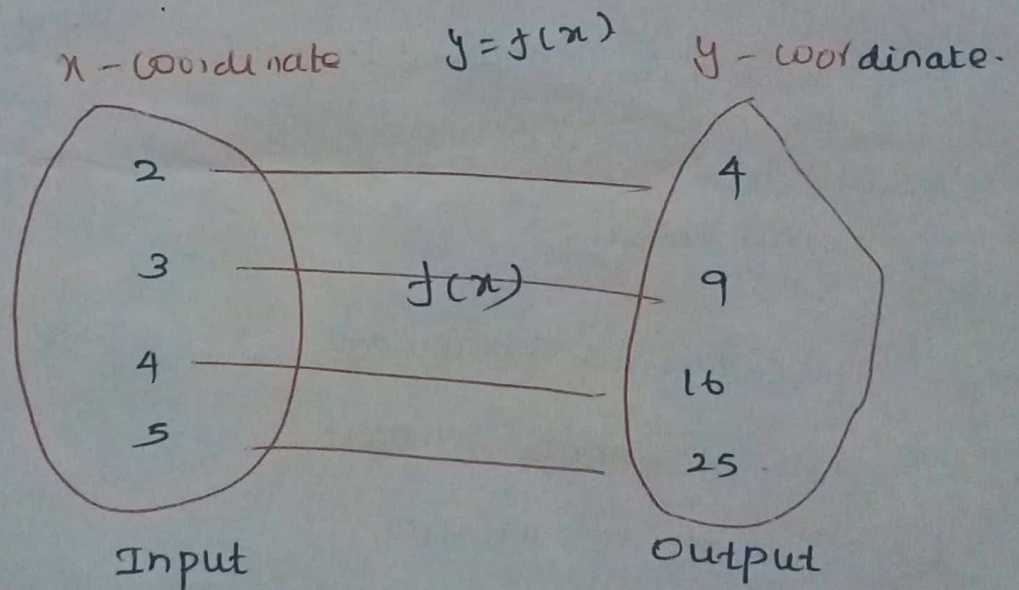 x - coordinate y = f(x) y - coordinate.
2 4
3 f(x) 9
4 16
5 25
Input Output